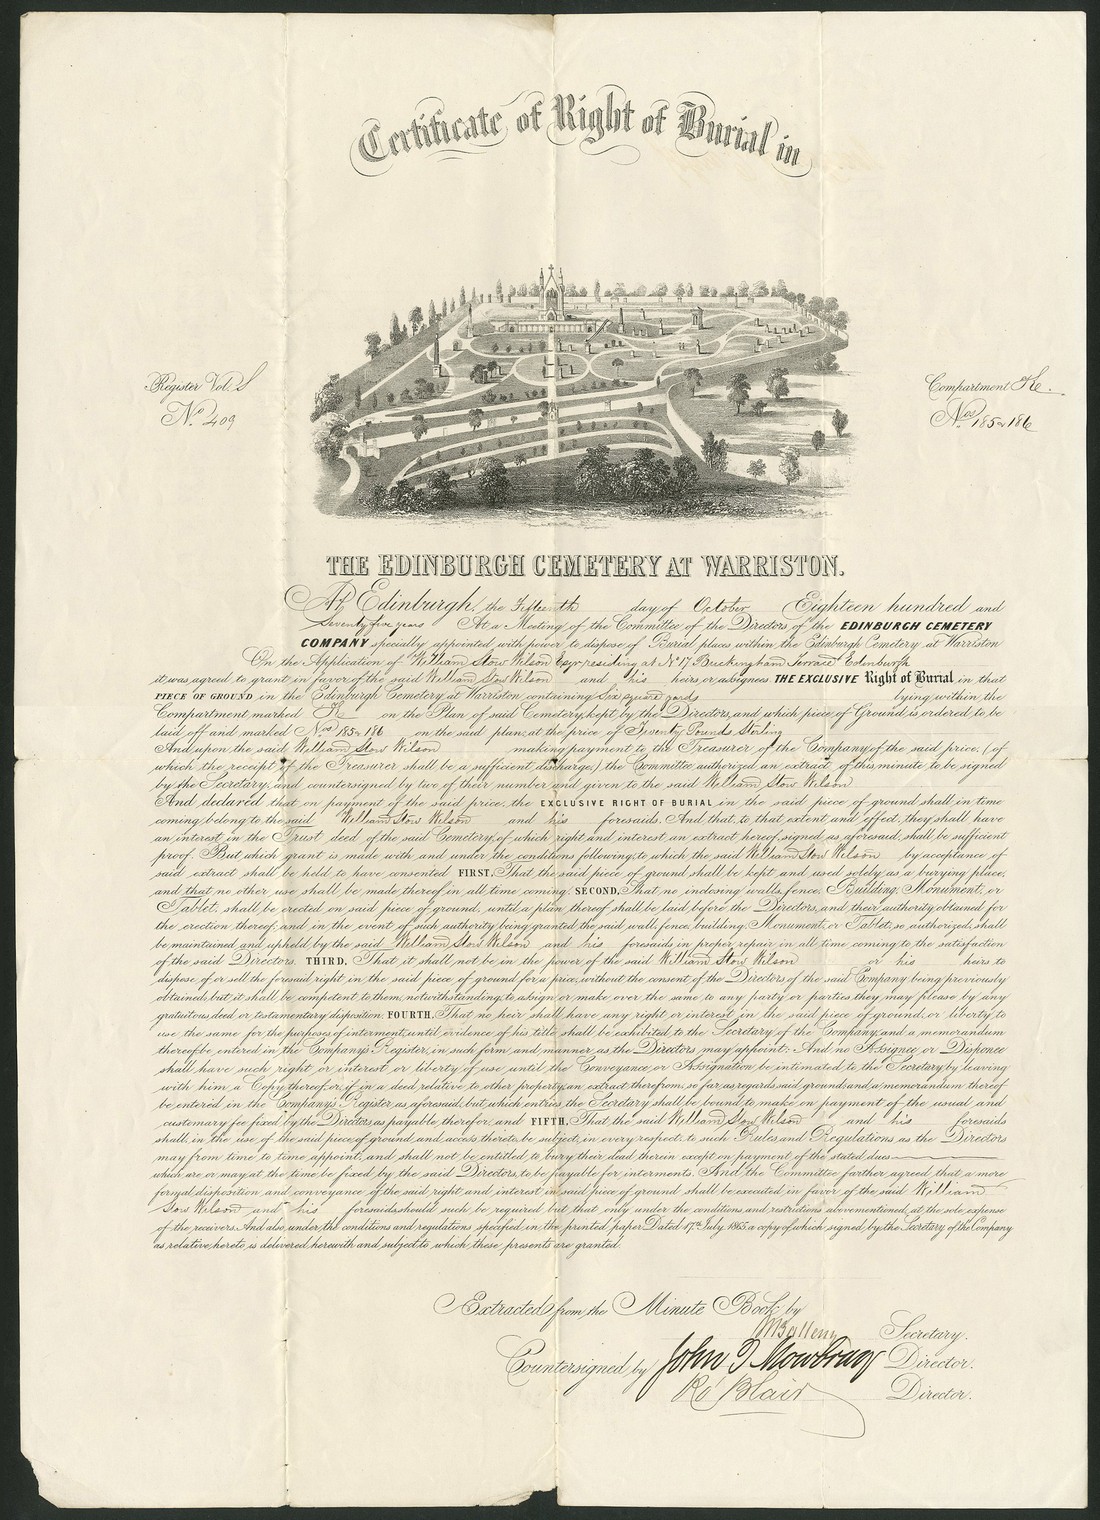 Certificate of Right of Burial in
Register Vol. S
No. 409
Compartment Ke.
Nos. 185 & 186
THE EDINBURGH CEMETERY AT WARRISTON.
At Edinburgh, the Fifteenth day of October Eighteen hundred and
Seventy five years At a Meeting of the Committee of the Directors of the EDINBURGH CEMETERY
COMPANY specially appointed with power to dispose of Burial places within the Edinburgh Cemetery at Warriston
On the Application of William Stow Wilson Esqr. residing at No 17 Buckingham Terrace Edinburgh
it was agreed to grant in favor of the said William Stow Wilson and his heirs or assignees THE EXCLUSIVE Right of Burial in that
PIECE OF GROUND in the Edinburgh Cemetery at Warriston containing Six square yards lying within the
Compartment marked K on the Plan of said Cemetery, kept by the Directors, and which piece of Ground is ordered to be
laid off and marked Nos 185 & 186 on the said plan; at the price of Twenty Pounds Sterling
And upon the said William Stow Wilson making payment to the Treasurer of the Company of the said price, (of
which the receipt of the Treasurer shall be a sufficient discharge,) the Committee authorized an extract of this minute to be signed
by the Secretary, and countersigned by two of their number and given to the said William Stow Wilson
And declared that on payment of the said price, the EXCLUSIVE RIGHT OF BURIAL in the said piece of ground shall in time
coming belong to the said William Stow Wilson and his foresaids. And that, to that extent and effect, they shall have
an interest, in the Trust deed of the said Cemetery, of which right and interest an extract hereof, signed as aforesaid, shall be sufficient
proof. But which grant is made with and under the conditions following; to which the said William Stow Wilson by acceptance of
said extract shall be held to have consented FIRST, That the said piece of ground shall be kept and used solely as a burying place,
and that no other use shall be made thereof in all time coming. SECOND, That no inclosing walls, fence, Building, Monument, or
Tablet, shall be erected on said piece of ground, until a plan thereof shall be laid before the Directors, and their authority obtained for
the erection thereof; and in the event of such authority being granted, the said wall, fence, building, Monument, or Tablet, so authorized, shall
be maintained and upheld by the said William Stow Wilson and his foresaids in proper repair in all time coming to the satisfaction
of the said Directors. THIRD, That it shall not be in the power of the said William Stow Wilson or his heirs to
dispose of or sell the foresaid right in the said piece of ground for a price, without the consent of the Directors of the said Company being previously
obtained, but it shall be competent to them, notwithstanding, to assign or make over the same to any party or parties they may please by any
gratuitous deed or testamentary disposition: FOURTH, That no heir shall have any right or interest in the said piece of ground, or liberty to
use the same for the purposes of interment, until evidence of his title, shall be exhibited to the Secretary of the Company, and a memorandum
thereof be entered in the Company's Register, in such form and manner as the Directors may appoint: And no Assignee or Disponee
shall have such right or interest or liberty of use until the Conveyance or Assignation be intimated, to the Secretary by leaving
with him a Copy thereof, or, if in a deed relative to other property, an extract therefrom, so far, as regards said ground, and a memorandum thereof
be entered in the Company's Register as aforesaid, but, which entries, the Secretary shall be bound to make on payment of the usual and
customary fee fixed by the Directors as payable therefor, and FIFTH, That the said William Stow Wilson and his foresaids
shall, in the use of the said piece of ground and access thereto, be subject, in every respect, to such Rules and Regulations as the Directors
may from time to time, appoint, and shall not be entitled to bury their dead therein except on payment of the stated dues
which are or may at the time be fixed by the said Directors, to be payable for interments. And the Committee farther agreed, that a more
formal disposition and conveyance of the said right and interest in said piece of ground shall be executed in favor of the said William
Stow Wilson and his foresaids should such be required but that only under the conditions and restrictions abovementioned, at the sole expense
of the receivers. And also, under the conditions and regulations specified in the printed paper, Dated 17th July 1865, a copy of which signed by the Secretary of the Company
as relative hereto is delivered herewith and subject to which these presents are granted.
Extracted from the Minute Book by
Secretary.
Countersigned by John T Mowbray Director.
Ro Blair Director.